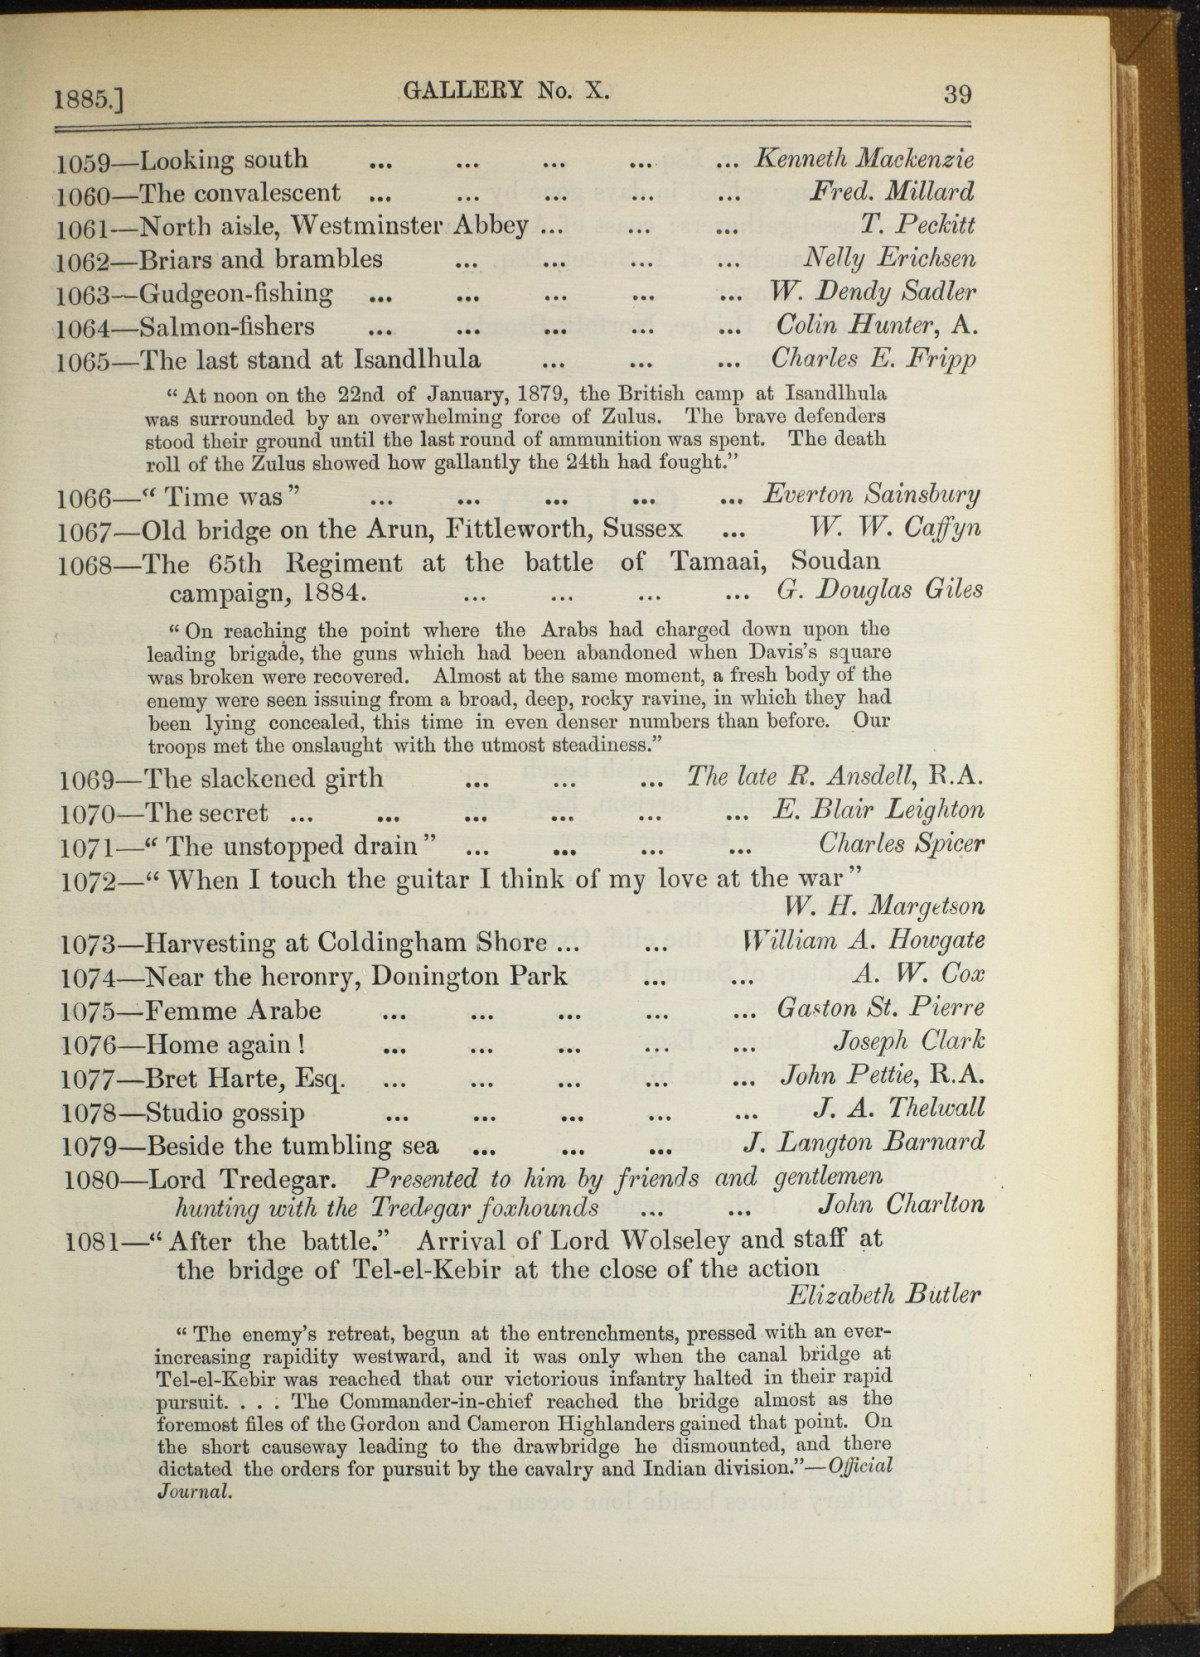 1885.] GALLERY No. X. 39
1059—Looking south ... ... ... ... ... Kenneth Mackenzie
1060—The convalescent ... ... ... ... ... Fred. Millard
1061—North aisle, Westminster Abbey ... ... ... T. Peckitt
1062—Briars and brambles ... ... ... ... Nelly Erichsen
1063—Gudgeon-fishing ... ... ... ... ... W. Dendy Sadler
1064—Salmon-fishers ... ... ... ... ... Colin Hunter, A.
1065—The last stand at Isandlhula ... ... ... Charles E. Fripp
“At noon on the 22nd of January, 1879, the British camp at Isandlhula
was surrounded by an overwhelming force of Zulus. The brave defenders
stood their ground until the last round of ammunition was spent. The death
roll of the Zulus showed how gallantly the 24th had fought.”
1066—“Time was” ... ... ... ... ... Everton Sainsbury
1067—Old bridge on the Arun, Fittleworth, Sussex ... W. W. Caffyn
1068—The 65th Regiment at the battle of Tamaai, Soudan
campaign, 1884. ... ... ... ... G. Douglas Giles
“On reaching the point where the Arabs had charged down upon the
leading brigade, the guns which had been abandoned when Davis’s square
was broken were recovered. Almost at the same moment, a fresh body of the
enemy were seen issuing from a broad, deep, rocky ravine, in which they had
been lying concealed, this time in even denser numbers than before. Our
troops met the onslaught with the utmost steadiness.”
1069—The slackened girth ... ... ... The late R. Ansdell, R.A.
1070—The secret ... ... ... ... ... ... E. Blair Leighton
1071—“The unstopped drain” ... ... ... ... Charles Spicer
1072—“When I touch the guitar I think of my love at the war”
W. H. Margetson
1073—Harvesting at Coldingham Shore ... ... William A. Howgate
1074—Near the heronry, Donington Park ... ... A. W. Cox
1075—Femme Arabe ... ... ... ... ... Gaston St. Pierre
1076—Home again! ... ... ... ... ... Joseph Clark
1077—Bret Harte, Esq. ... ... ... ... ... John Pettie, R.A.
1078—Studio gossip ... ... ... ... ... J. A. Thelwall
1079—Beside the tumbling sea ... ... ... J. Langton Barnard
1080—Lord Tredegar. Presented to him by friends and gentlemen
hunting with the Tredegar foxhounds ... ... John Charlton
1081—“After the battle.” Arrival of Lord Wolseley and staff at
the bridge of Tel-el-Kebir at the close of the action
Elizabeth Butler
“The enemy’s retreat, begun at the entrenchments, pressed with an ever-
increasing rapidity westward, and it was only when the canal bridge at
Tel-el-Kebir was reached that our victorious infantry halted in their rapid
pursuit. . . . The Commander-in-chief reached the bridge almost as the
foremost files of the Gordon and Cameron Highlanders gained that point. On
the short causeway leading to the drawbridge he dismounted, and there
dictated the orders for pursuit by the cavalry and Indian division.”—Official
Journal.